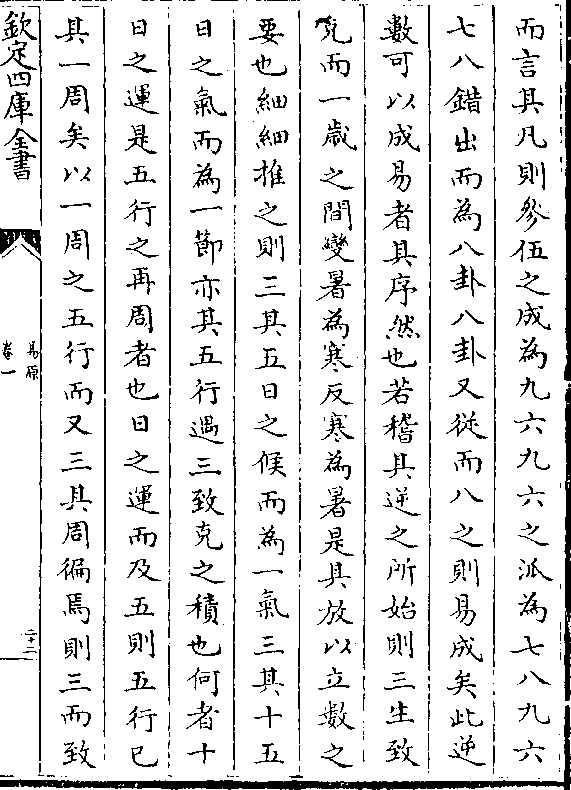 而言其凡則參伍之成為九六九六之派為七八九六
七八錯出而為八卦八卦又從而八之則易成矣此逆
數可以成易者其序然也若稽其逆之所始則三生致
克而一歲之間變暑為寒反寒為暑是其放以立數之
要也細細推之則三其五日之候而為一氣三其十五
日之氣而為一節亦其五行遇三致克之積也何者十
日之運是五行之再周者也日之運而及五則五行已
具一周矣以一周之五行而又三其周徧焉則三而致
欽定四庫全書
易原
卷一
二十二